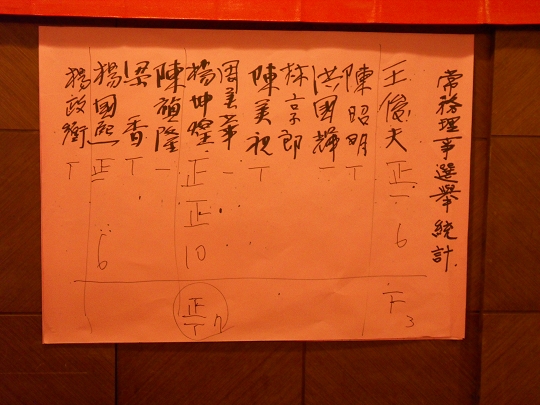 常務理事選舉統計
王俊夫 正一 6 下 3
陳昭明 丅
洪國輝 一
林京郎
陳美祝 丅
周美華 一
楊坤煌 正正 10 正丅 7
陳禎隆 一
梁香 丅
楊國熙 正一 6
楊政衛 丅